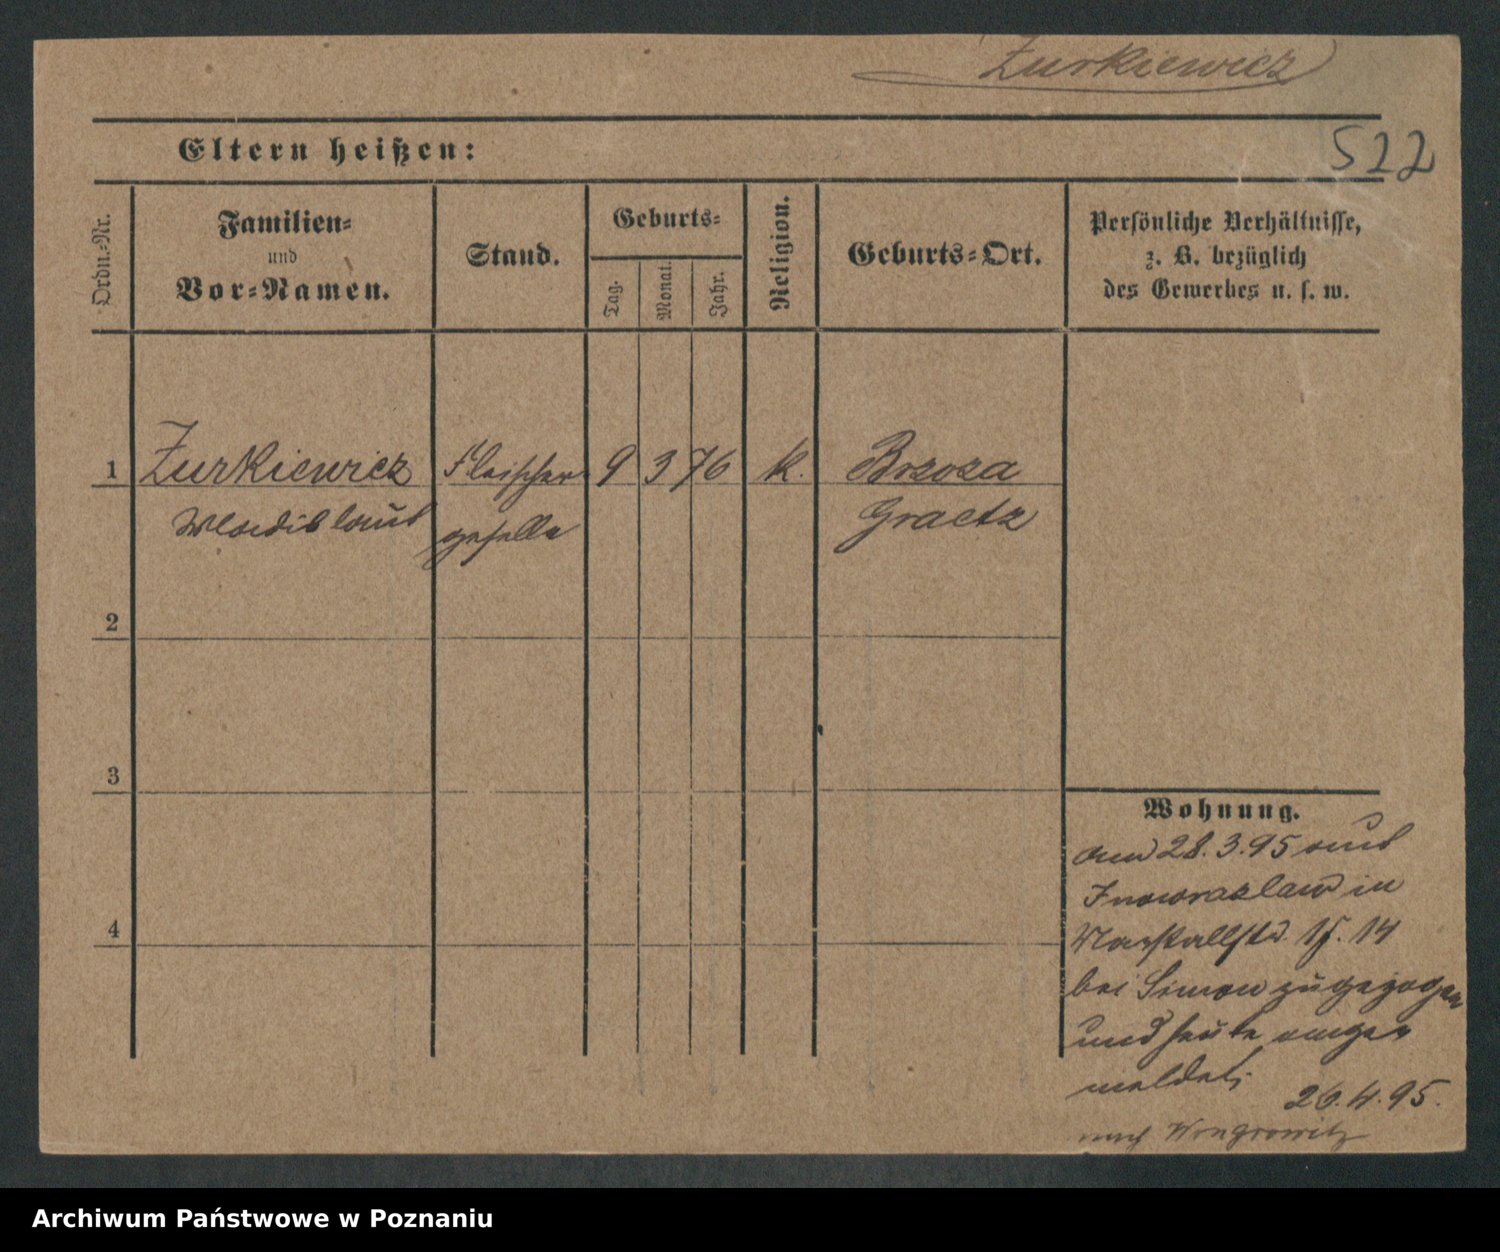 Zurkiewicz
522
Eltern heißen:
Ordn.=Nr.
Familien=
und
Vor=Namen.
Stand.
Geburts=
Tag.
Monat.
Jahr.
Religion.
Geburts=Ort.
Persönliche Verhältnisse,
z. B. bezüglich
des Gewerbes u. s. w.
1 Zurkiewicz Fleischer 9 3 76 k. Brzoza
Wladislaus geselle Graetz
2
3
4
Wohnung.
am 28. 3. 95 aus
Inowrazlaw in
Marstallstr. 14
bei Simon zugezogen
und heute ange
meldet;
26. 4. 95.
nach Wongrowitz
Archiwum Państwowe w Poznaniu